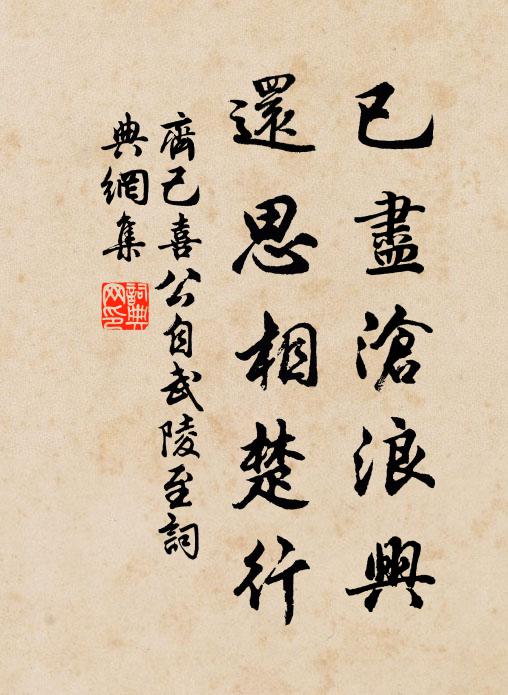 已盡滄浪興
還思相楚行
齊己喜公自武陵至詞
典網集
詞典网印